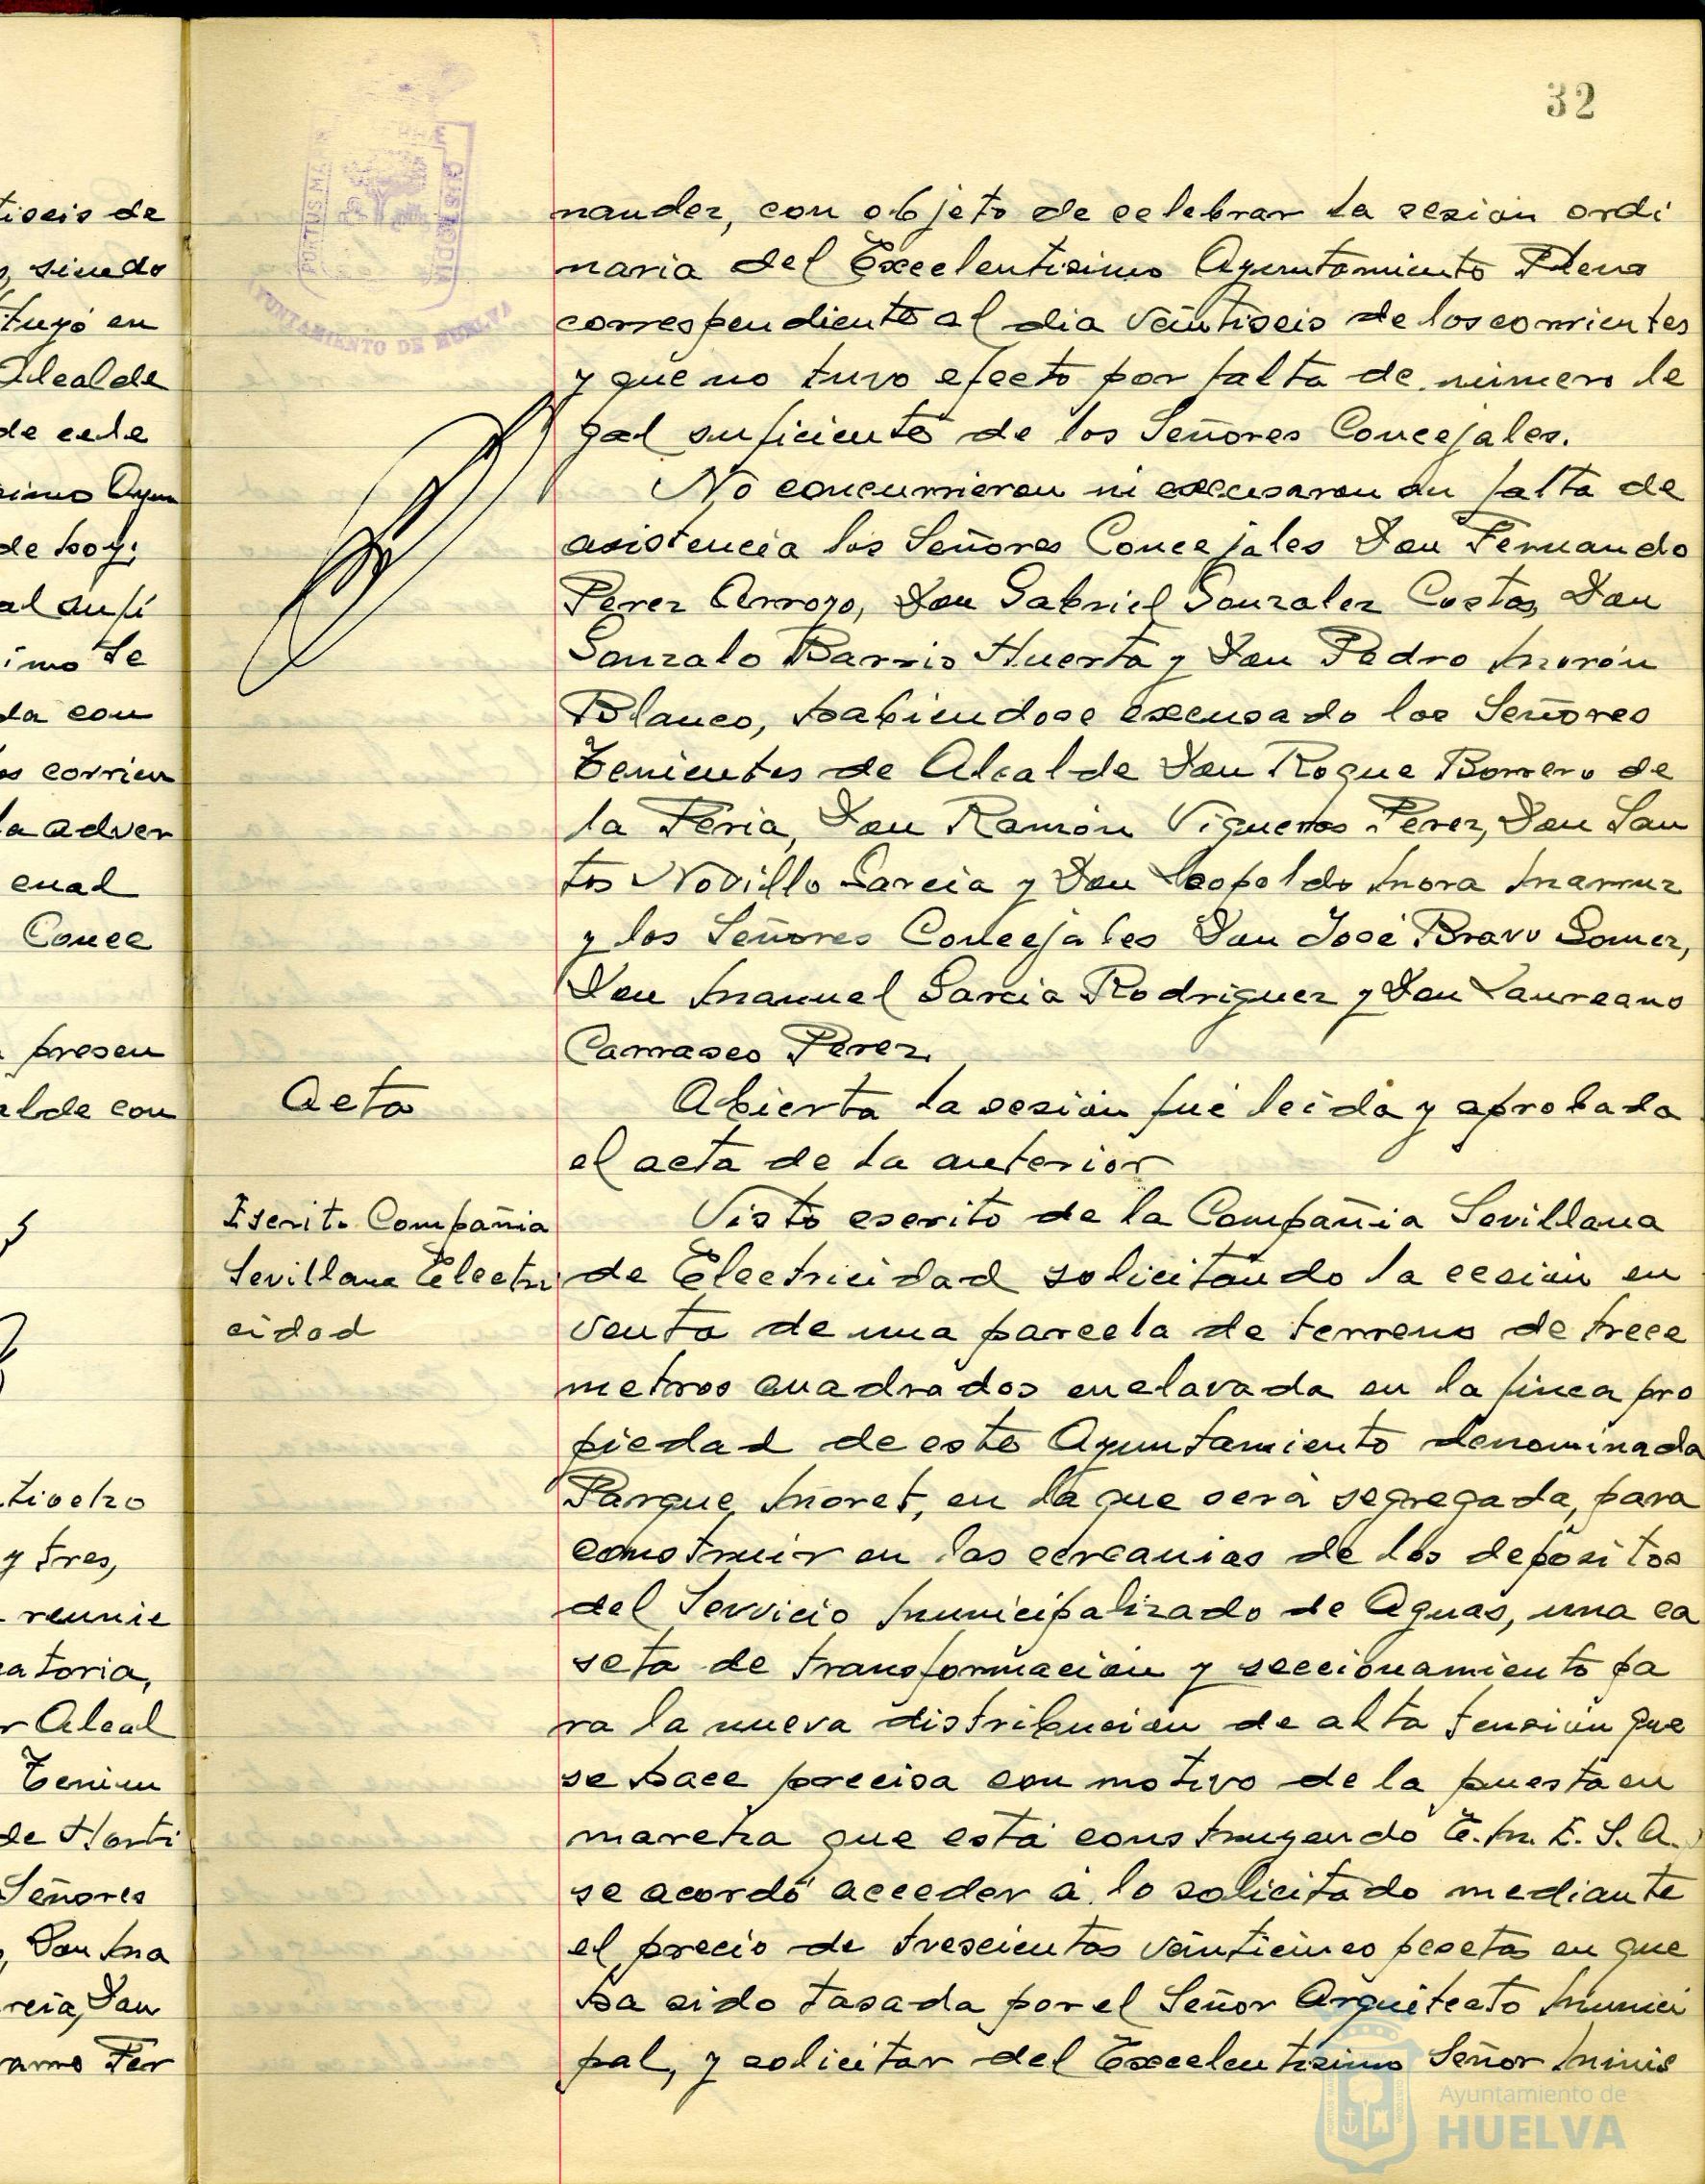 32
tiseis de
, siendo
tuyó en
Alcalde
de cele
simo Ayun
de hoy;
al sufi
imo se
da con
os corrien
la adver
cual
Conce
presen
alde con
tiocho
y tres,
reunie
catoria,
r Alcal
Tenien
de Horti
Señores
, Don Ma
rcia, Don
varro Fer
PORTUS MARIS
CUSTODIA
AYUNTAMIENTO DE HUELVA
nandez, con objeto de celebrar la sesión ordi
naria del Excelentisimo Ayuntamiento Pleno
correspendiente al dia veintiseis de los corrientes
y que no tuvo efecto por falta de número le
gal suficiente de los Señores Concejales.
No concurrieron ni excusaron su falta de
asistencia los Señores Concejales Don Fernando
Perez Arroyo, Don Gabriel Gonzalez Costas, Don
Gonzalo Barris Huerta y Don Pedro Morón
Blanco, habiendose excusado los Señores
Tenientes de Alcalde Don Roque Borrero de
la Feria, Don Ramón Vigueras Perez, Don San
tos Novillo Garcia y Don Leopoldo Mora
y los Señores Concejales Don José Bravo Gomez,
Don Manuel Garcia Rodriguez y Don Laureano
Carrasco Perez.
Acta
Abierta la sesión fué leida y aprobada
el acta de la anterior
Escrito Compañia
Sevillana Electri
cidad
Visto escrito de la Compañia Sevillana
de Electricidad solicitando la cesión en
venta de una parcela de terreno de trece
metros cuadrados enclavada en la finca pro
piedad de este Ayuntamiento denominada
Parque Moret, en la que será segregada, para
construir en las cercanias de los depositos
del Servicio Municipalizado de Aguas, una ca
seta de transformación y seccionamiento pa
ra la nueva distribución de alta tensión que
se hace precisa con motivo de la puesta en
marcha que está construyendo E.M.E.S.A.
se acordó acceder á lo solicitado mediante
el precio de trescientas veinticinco pesetas en que
ha sido tasada por el Señor Arquitecto Munici
pal, y solicitar del Excelentisimo Señor Minis
Ayuntamiento de
HUELVA